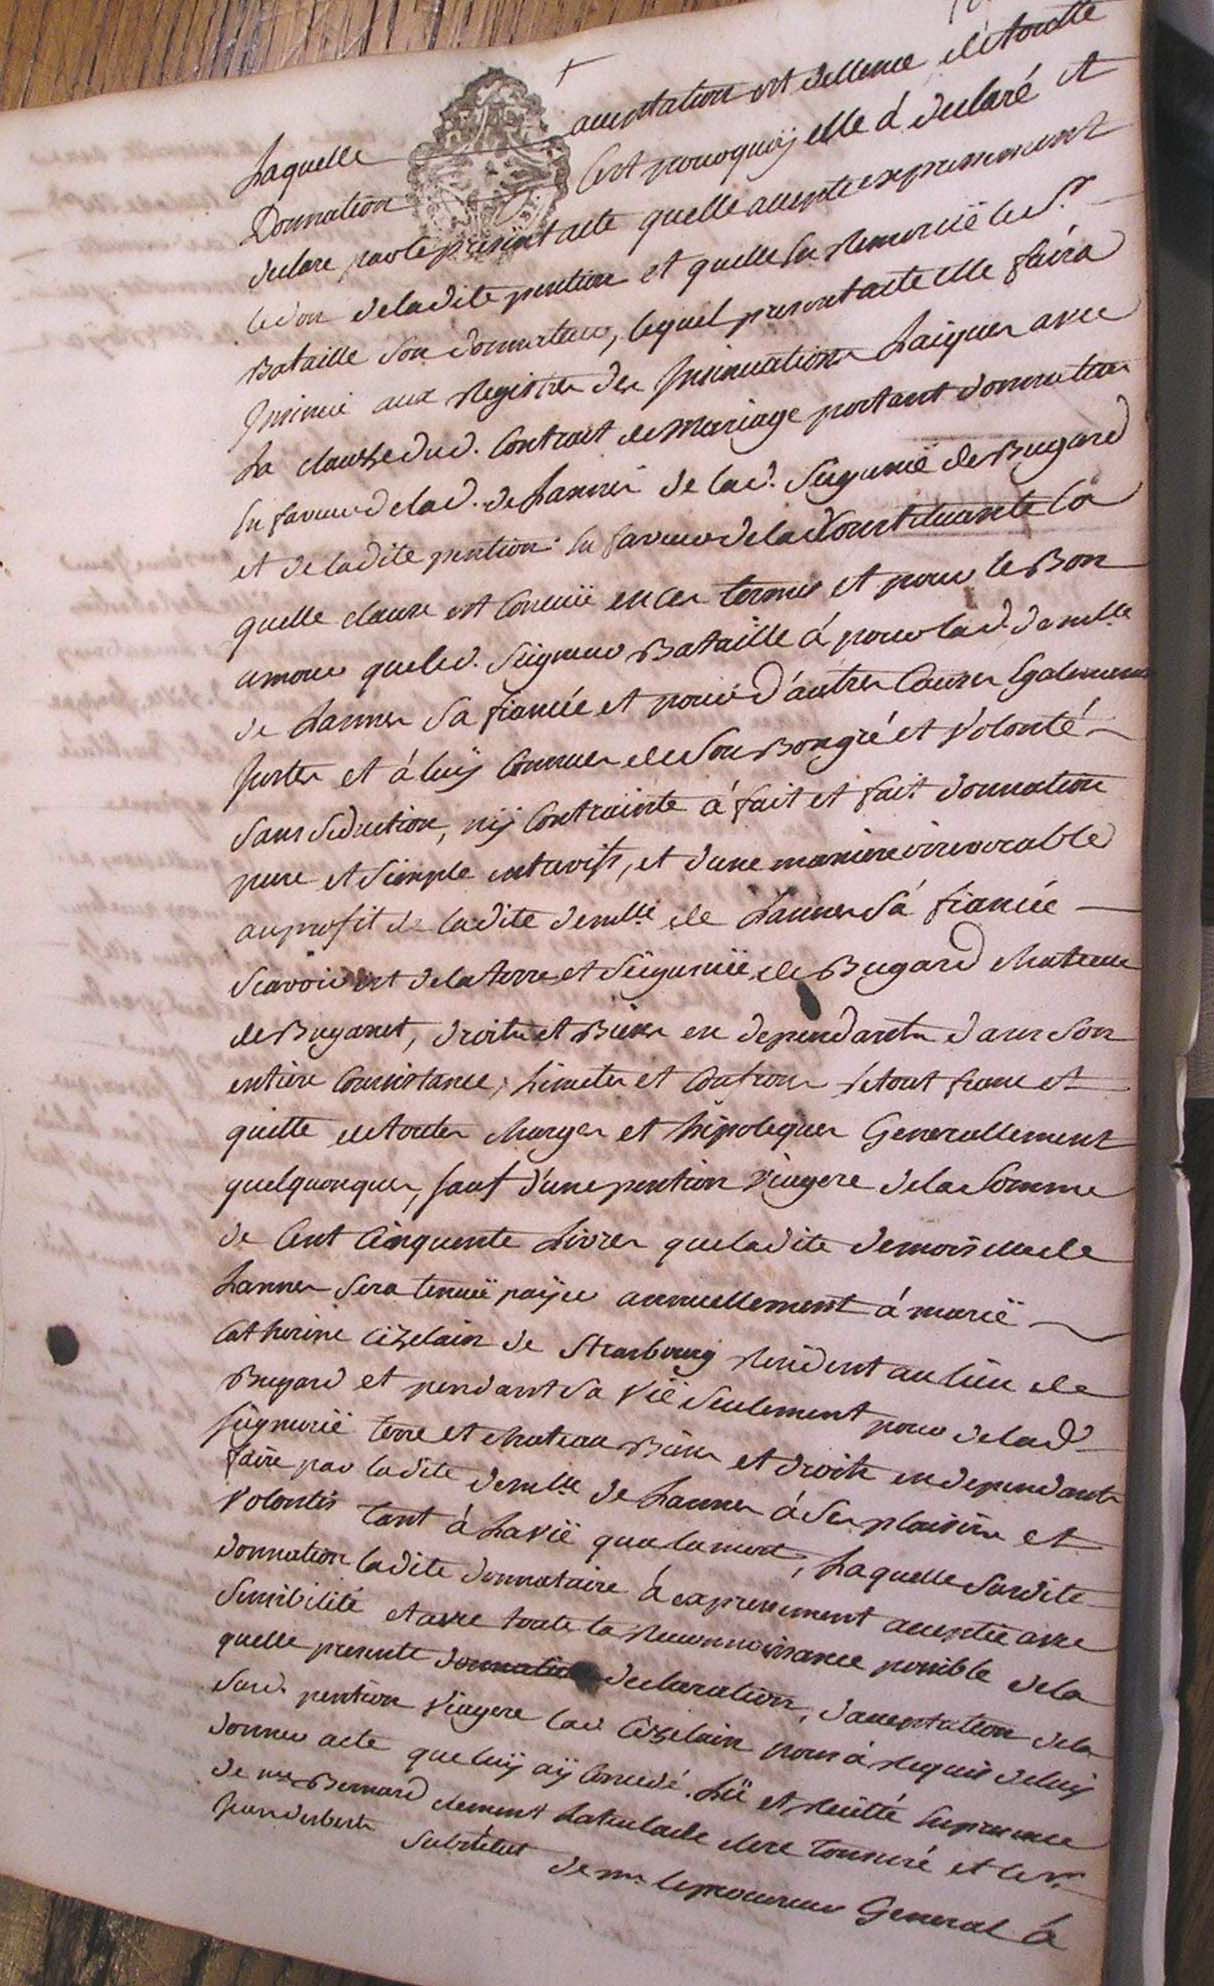 Laquelle acceptation est de l'ence de toutte
Donnation C'est pourquoij elle á declaré et
declare par le present acte quelle accepte expressement
le don de la dite pention et quelle en remercië le Sr
Bataille son donnateur, lequel present acte elle faira
Insinué aux Registres des Insinuations Laiques avec
La clausse dud. Contrait de Mariage portant donnation
en faveur de lad. de Lannes de lad. Seignrië de Bugard
et de la dite pention en faveur de la constituante la
quelle clause est conçuë en ces termes et pour le Bon
amour que led. Seigneur Bataille á pour lad. demlle
de Lannes sa fiancée et pour d'autres Causes Egalement
Justes et á luij Connues de son Bongré et Volonté
sans seduction, nij Contrainte á fait et fait donnation
pure et simple entrevifs, et d'une maniere irrevocable
au profit de ladite demlle de Lannes sá fiancée
scavoir est de la terre et Seigneurië de Bugard chateau
de Buganet, droits et Biens en dependants dans son
entiere Consistance, Limites et Confrons le tout franc et
quitte de toutes charges et hipoteques Generallement
quelquonques, sauf d'une pention viagere de la Somme
de Cent Cinquente Livres que ladite demoiselle de
Lannes sera tenuë paÿer annuellement á marië
Catherine Cizelain de Strasbourg residente au lieu de
Bugard et pendant sa Vië seulement pour de lad.
seignurië terre et chateau Biens et droits en dependants
faire par ladite demlle de Lannes á ses plaisirs et
Volontés tant á La vië qua la mort, Laquelle susdite
donnation ladite donnataire á expressement acceptée avec
sensibilité et avec toute la reconnoissance possible de la
quelle presente donnation declaration, d'acceptation de la
susd. pention viagere lad. Cizelain nous á requis de luij
donner acte que luij aÿ Concedé. Lü et recitté en presence
de me Bernard clement Latulade clerc tonsuré et le Sr
Jean desbets substitut de mr le procureur General á